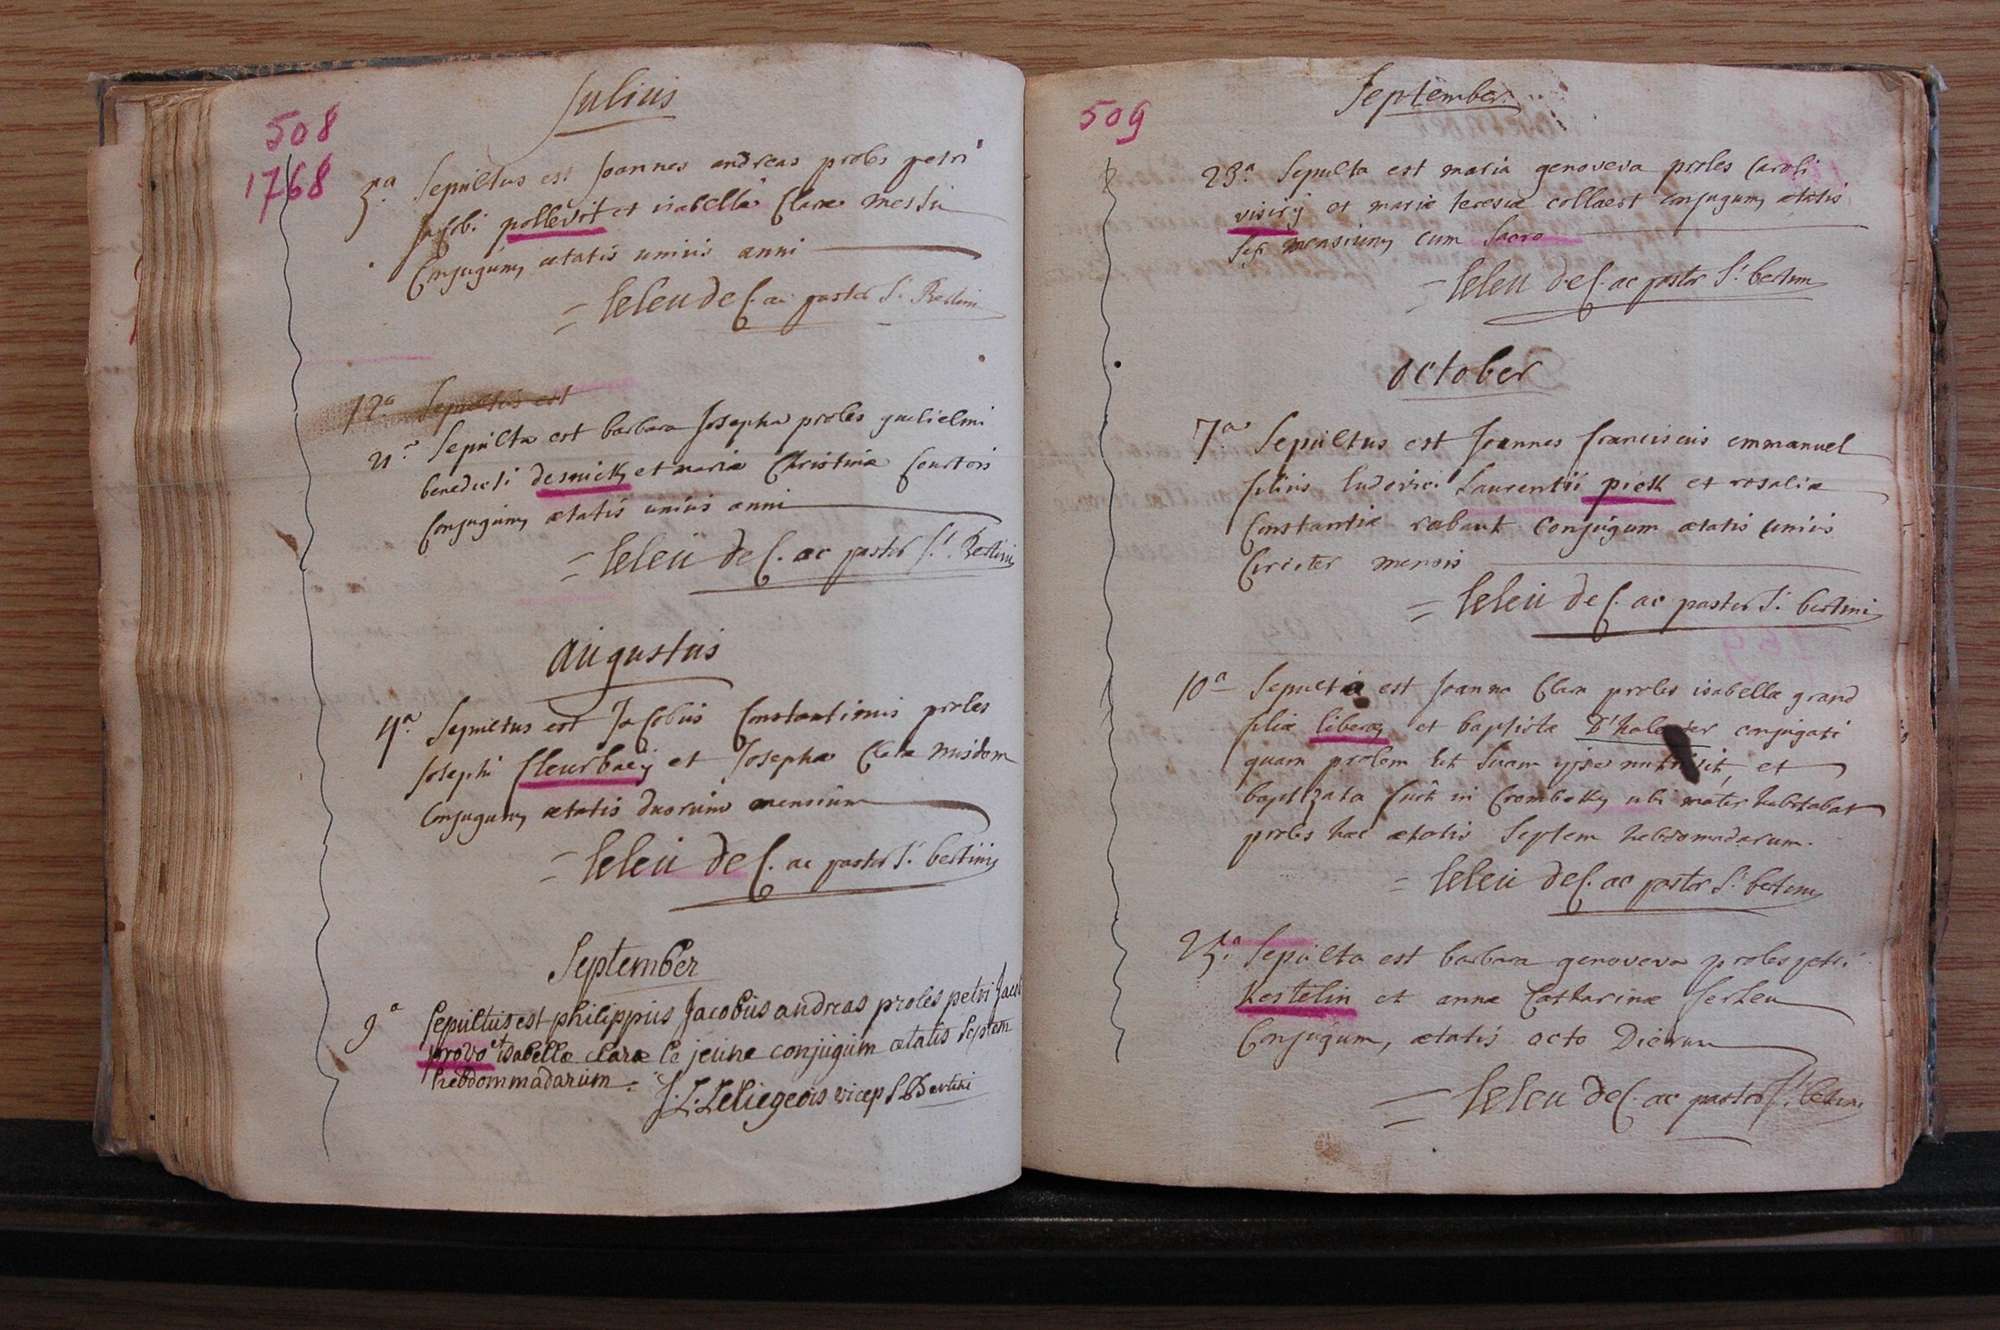 508
1768
Julius
5.a Sepultus est Joannes andreas proles petri
Jacobi pollevit et isabellæ Claræ
Conjugum ætatis unius anni
= leleu dec. ac pastor S.t Bertini
12.a Sepultus est
21.a Sepulta est barbara Josepha proles guilielmi
benedicti et mariæ Christinæ Courtois
Conjugum ætatis unius anni
= leleu dec. ac pastor S.t Bertini
augustus
4.a Sepultus est Jacobus Constantinus proles
Josephi fleurbaeij et Josephæ Claræ
Conjugum ætatis duorum mensium
= leleu dec. ac pastor S.t bertini
September
9.a Sepultus est philippus Jacobus andreas proles petri Jacobi
provo et isabellæ claræ le jeune conjugum ætatis septem
hebdommadarum.
J. L. Leliegeois vicep S. Bertini
509
September
23.a Sepulta est maria genoveva proles Caroli
viserij et mariæ teresiæ collaert conjugum ætatis
sex mensium cum
= leleu dec. ac pastor S.t bertini
October
7.a Sepultus est Joannes franciscus emmanuel
filius ludovici Laurentii pieck et rosaliæ
Constantiæ rabaut conjugum ætatis unius
Circiter mensis
= leleu dec. ac pastor S.t bertini
10.a Sepulta est Joanna Clara proles isabellæ grand
filiæ et baptistæ conjugati
quam prolem ut suam ipse et
baptizata fuit in Crombeke ubi mater habitabat
proles hæc ætatis septem hebdomadarum.
= leleu dec. ac pastor S.t bertini
25.a Sepulta est barbara genoveva proles petri
kestelin et annæ Catharinæ
Conjugum, ætatis octo Dierum
= leleu dec. ac pastor S.t bertini